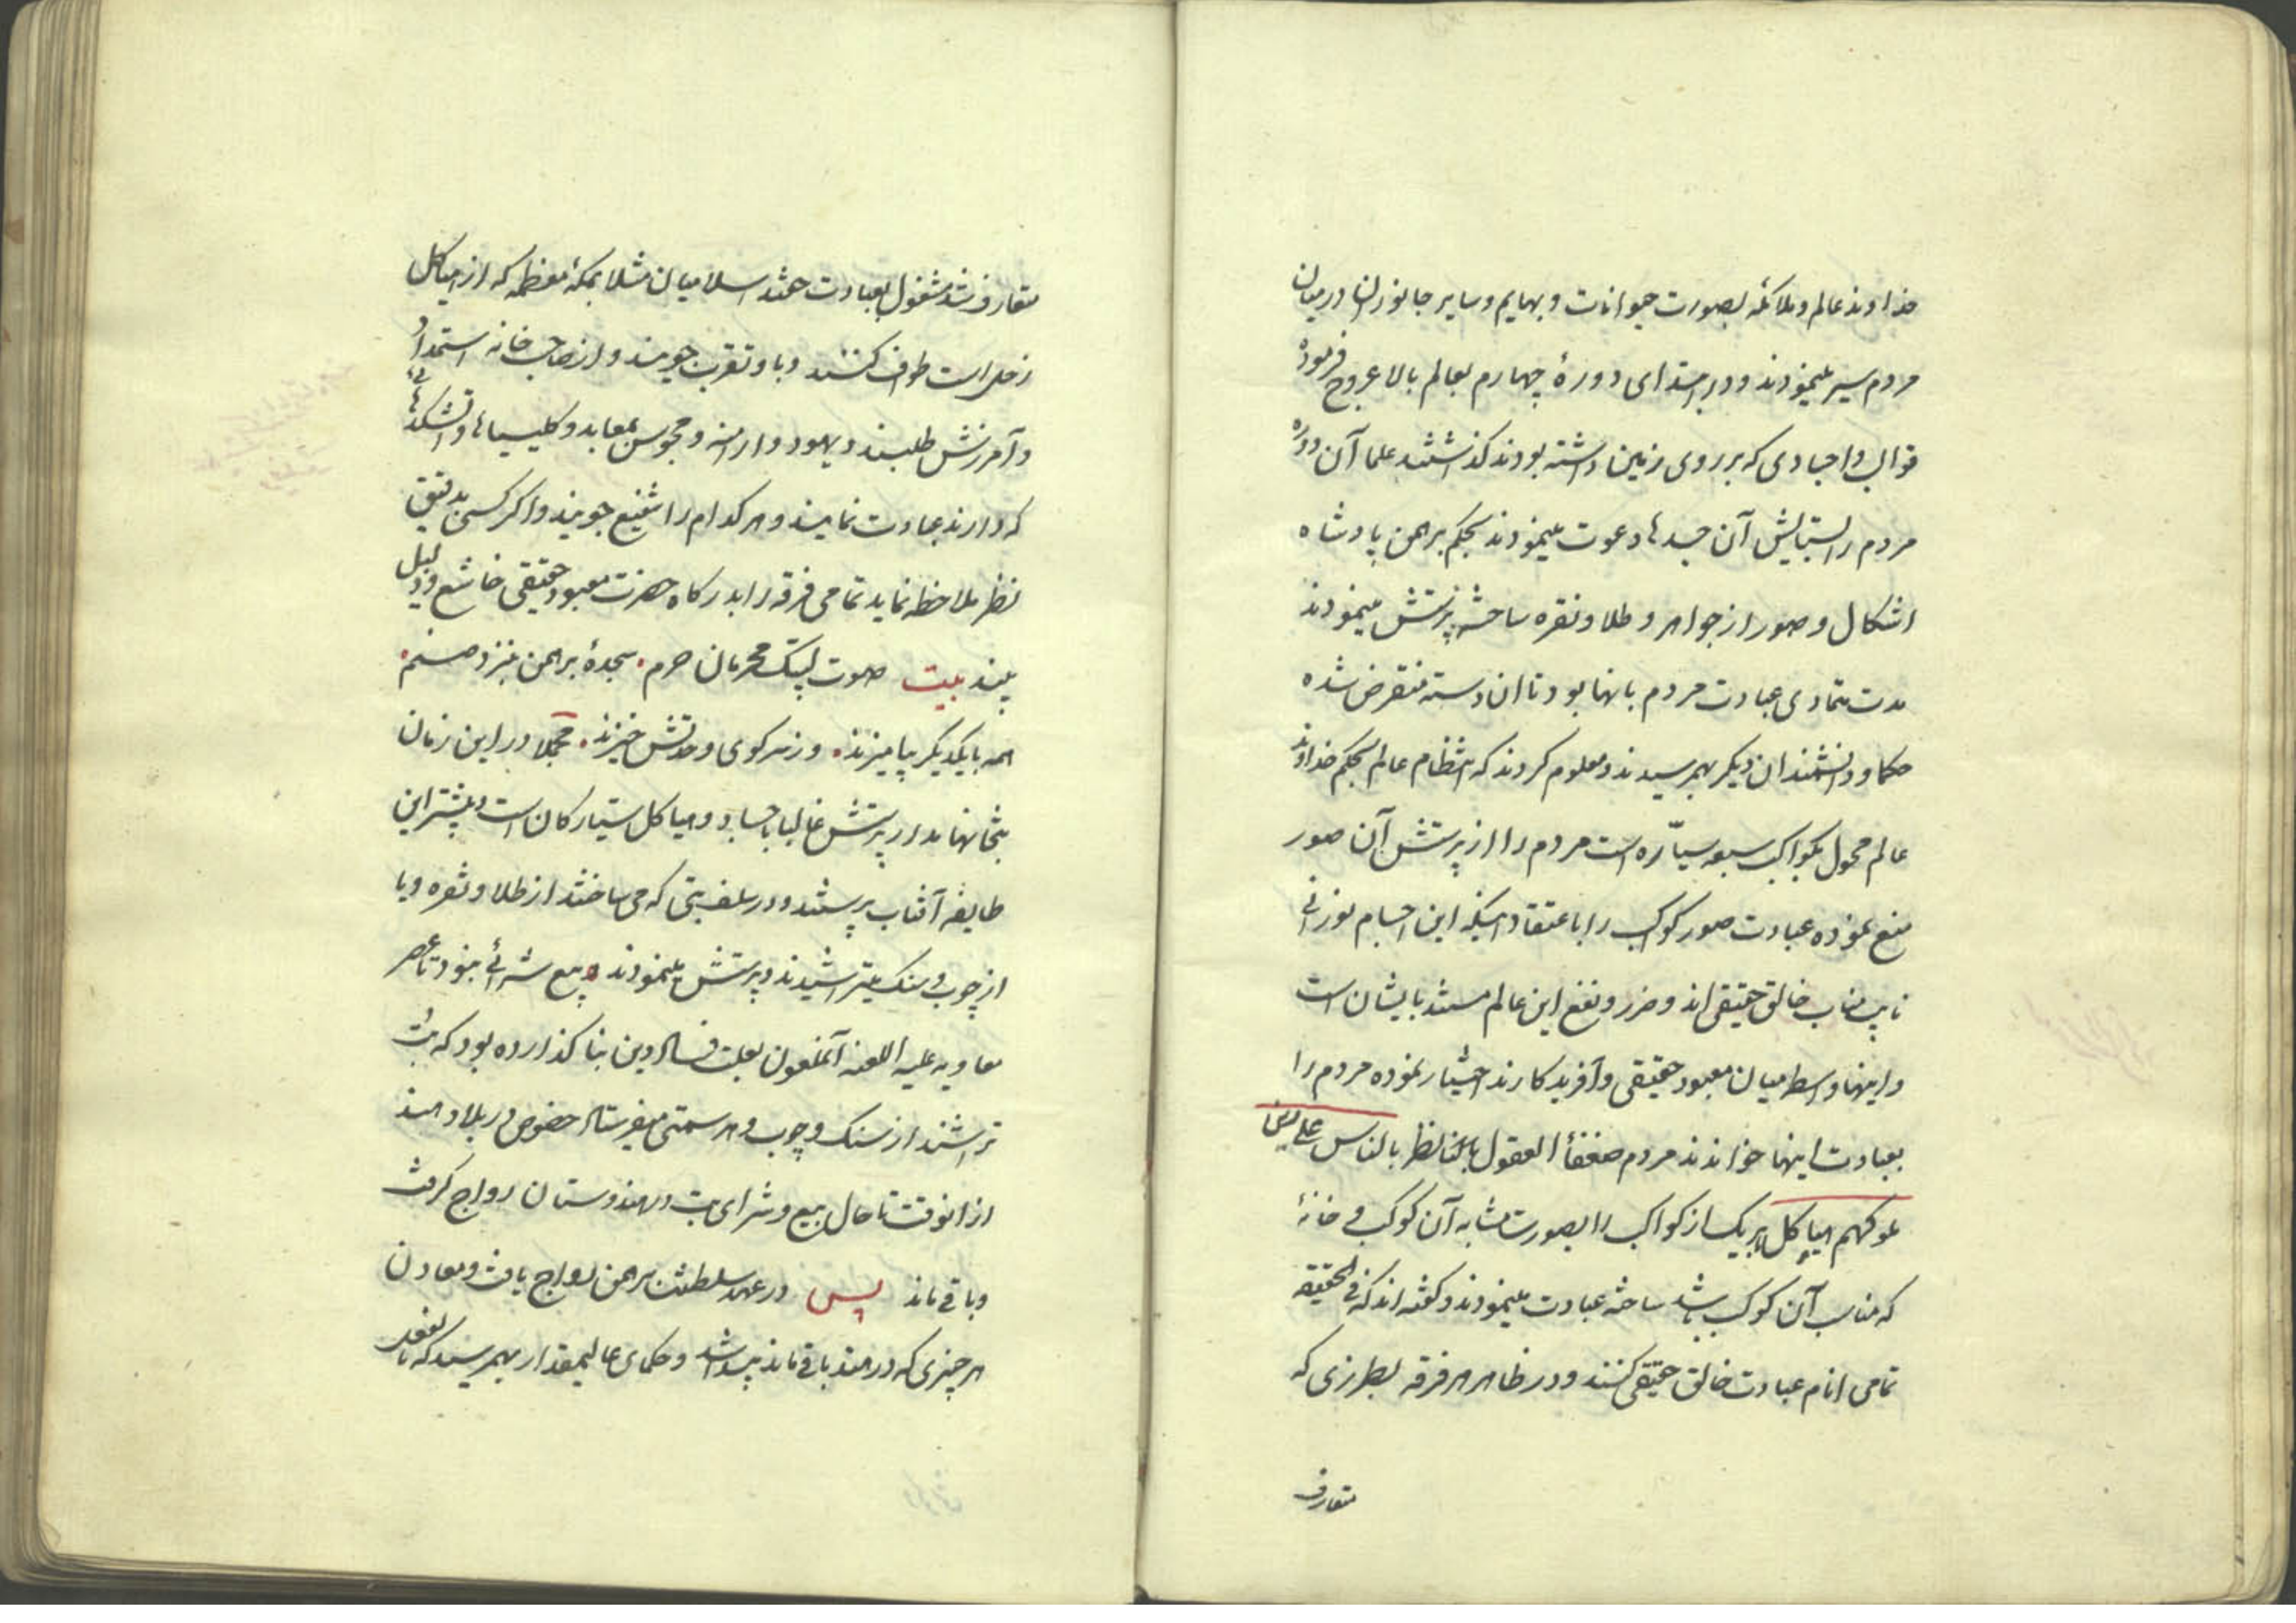 خداوند عالم و ملائکه بصورت حیوانات و بهایم و سایر جانوران در میان
مردم سیر مینمودند و در ابتدای دورهٔ چهارم بعالم بالا عروج فرموده
قوالب و اجسادی که بر روی زمین داشته بودند کذاشتند علما آن دوره
مردم را بستایش آن جسدها دعوت مینمودند بحکم برهمن پادشاه
اشکال و صور از جواهر و طلا و نقره ساخته پرستش مینمودند
مدت متمادی عبادت مردم بانها بود تا ان دسته منقرض شده
حکما و دانشمندان دیکر بهم رسیدند و معلوم کردند که انتظام عالم بحکم خداوند
عالم محول بکواکب سبعه سیّاره است مردم را از پرستش آن صور
منع نموده عبادت صور کواکب را باعتقاد اینکه این اجسام نورانی
نایب مناب خالق حقیقی اند و ضرر و نفع این عالم مستند بایشان است
و اینها واسطه میان معبود حقیقی و آفریدکارند اختیار نموده مردم را
بعبادت اینها خواندند مردم ضعفأ العقول بالناس علی دین
ملوکهم هیاکل هر یک از کواکب را بصورت مشابه آن کوکب و خانهٔ
که مناسب آن کوکب باشد ساخته عبادت مینمودند و کفته اند که فی الحقیقه
تمامی انام عبادت خالق حقیقی کنند و در ظاهر هر فرقه بطرزی که
متعارف
متعارف شد مشغول بعبادت هستند اسلامیان مثلا بمکهٔ معظمه که از هیاکل
زحل است طواف کنند و باو تقرب جویند و از صاحب خانه استمداد
و آمرزش طلبند و یهود و ارامنه و مجوس بمعابد و کلیسیاها و آتشکدهائی
که دارند عبادت نمایند و هر کدام را شفیع جویند و اکر کسی بدقیق
نظر ملاحظه نماید تمامی فرقه را بدرکاه حضرت معبود حقیقی خاشع و ذلیل
بیند بیت صوت لبیک محرمان حرم سجدهٔ برهمن بنزد صنم
همه با یکدیکر بیامیزند وز سر کوی وحدتش خیزند مجملا در این زمان
بتخانها مدار پرستش غالبا باجساد و هیاکل سیارکان است و بیشتر این
طایفه آفتاب پرستند و در سلف بتی که می ساختند از طلا و نقره و یا
از چوب و سنک میتراشیدند و پرستش مینمودند و بیع شرائی نبود تا عصر
معاویه علیه اللعنه آنملعون بعلت فساد دین بنا کذارده بود که بت
تراشند از سنک و چوب و هر سمتی میفرستاد خصوص در بلاد هند
از انوقت تا حال بیع و شرای بت در هندوستان رواج کرفت
و باقی ماند پس در عهد سلطنت برهمن رواج یافت و معادن
هر چیزی که در هند باقی ماند پیدا شد و حکمای عالیمقدار بهم رسید که تا